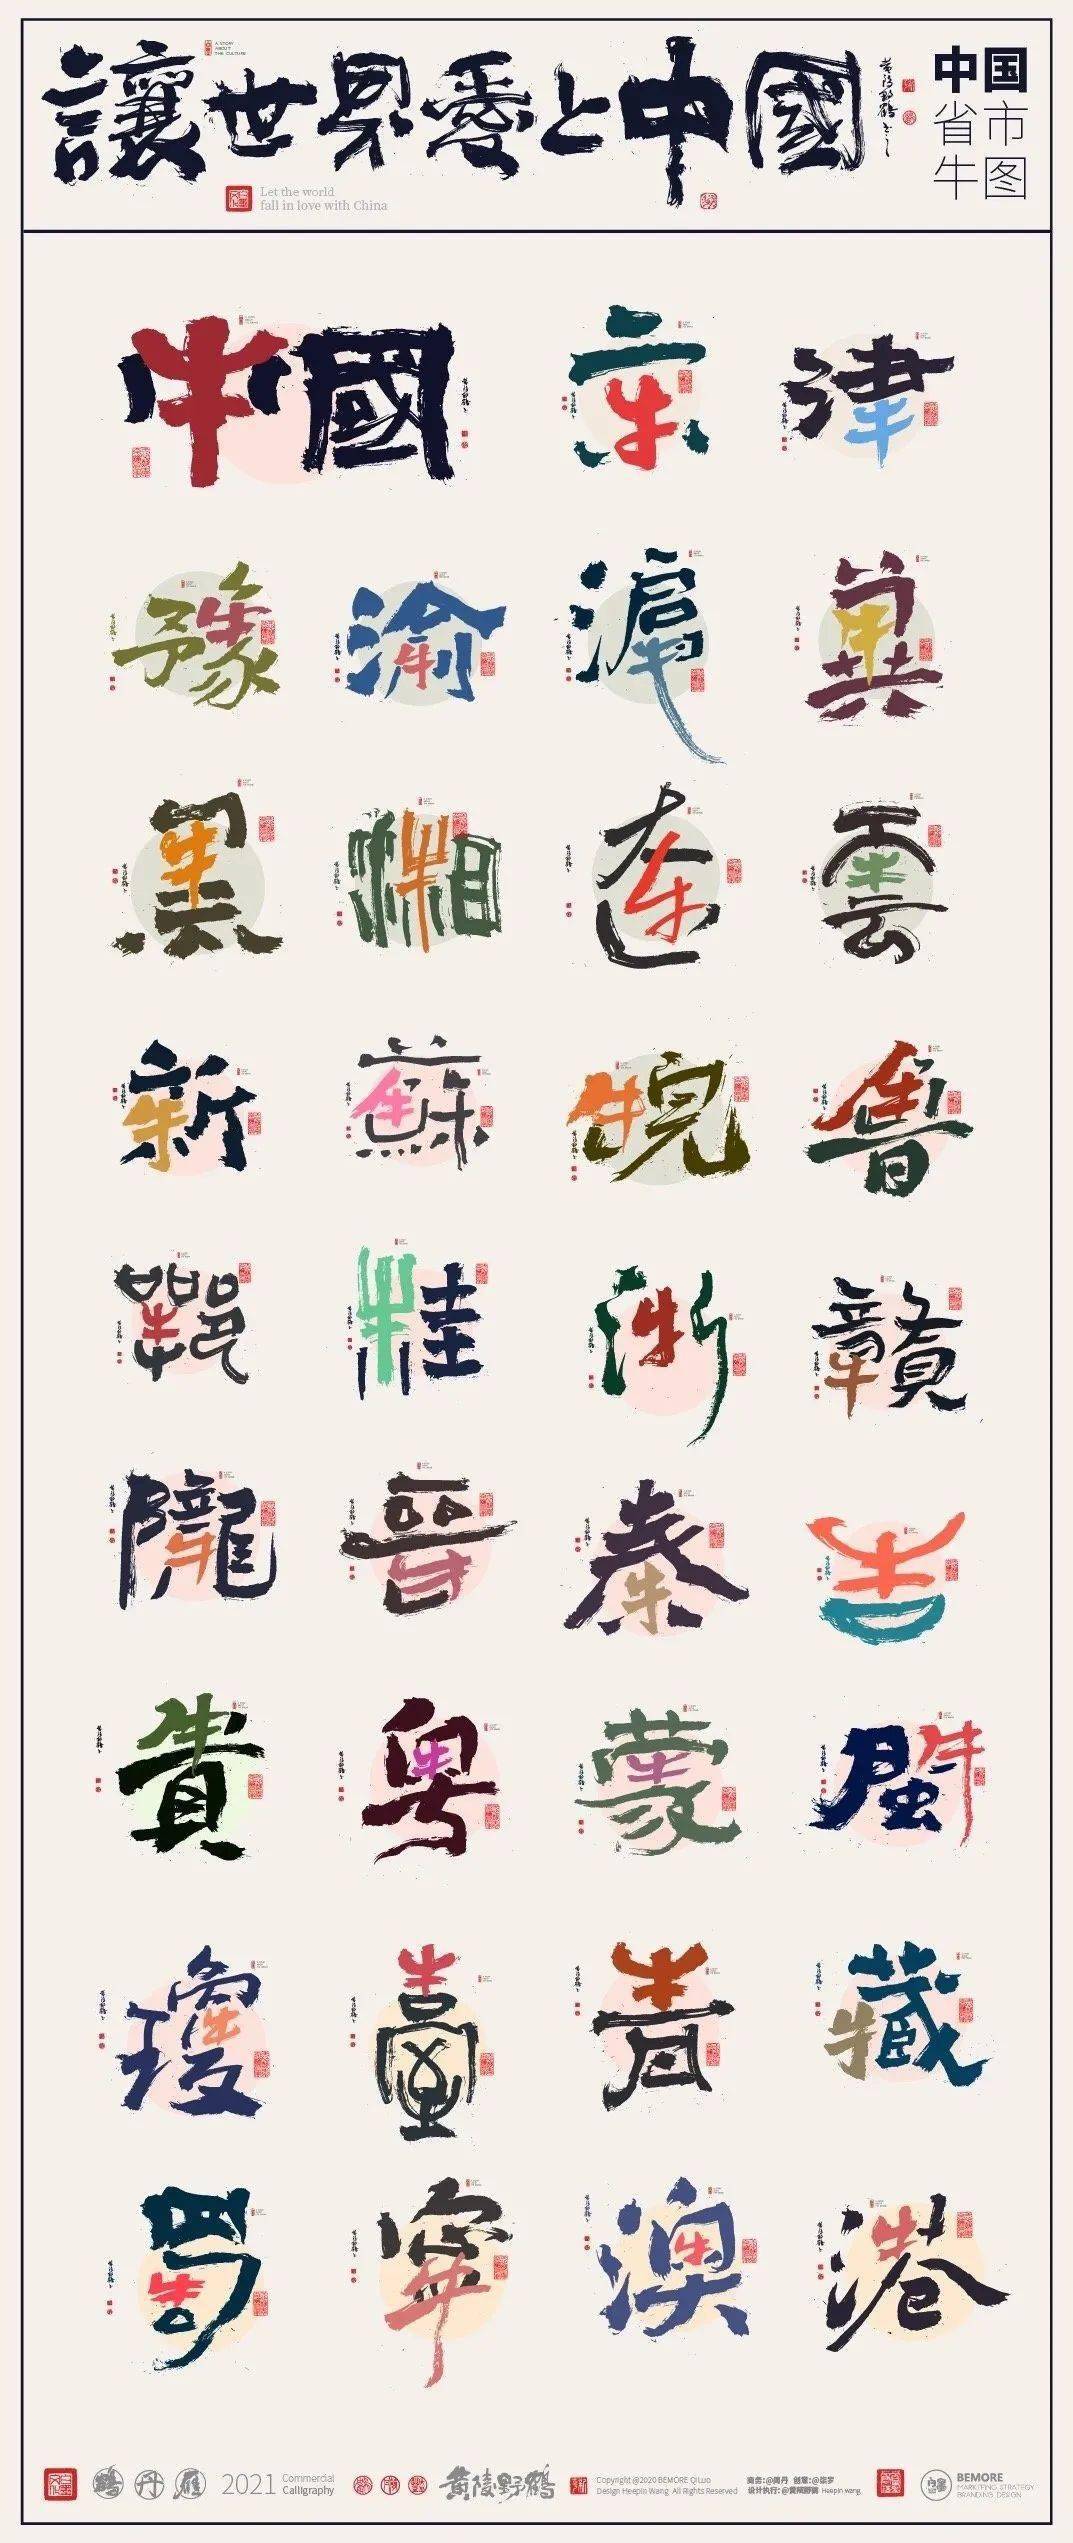 讓世界愛と中國
A STORY
ABOUT
THE CULTURE
黄陵野鶴
Let the world
fall in love with China
中国
省市
牛图
中國
京
津
豫
渝
滬
冀
黑
湘
遼
雲
新
蘇
皖
魯
鄂
桂
浙
贛
隴
晉
秦
吉
貴
粤
蒙
閩
瓊
臺
青
藏
蜀
寧
澳
港
鶴 丹 雁
2021 Commercial
Calligraphy
黄陵野鶴
Copyright @2020 BEMORE QiLuo
Design Heepin Wang All Rights Reserved
BEMORE
MARKETING STRATEGY
BRANDING DESIGN